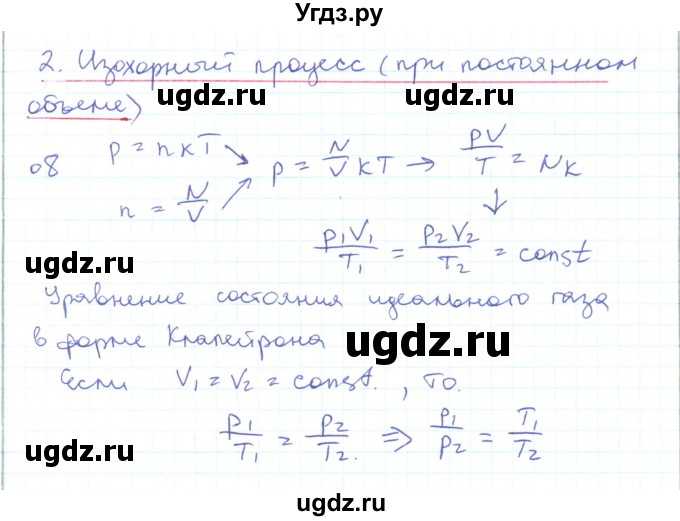 Угдз.ру
2. Изохорный процесс (при постоянном
объеме)
ugdz.ru ugdz.ru
08 p = nkT
n = N/V
p = N/V kT → pV/T = Nk
↓
p₁V₁/T₁ = p₂V₂/T₂ = const
ugdz.ru
Уравнение состояния идеального газа
в форме Клапейрона
ugdz.ru
Если V₁ = V₂ = const. , то.
p₁/T₁ = p₂/T₂. ⇒ p₁/p₂ = T₁/T₂
ugdz.ru
ugdz.ru